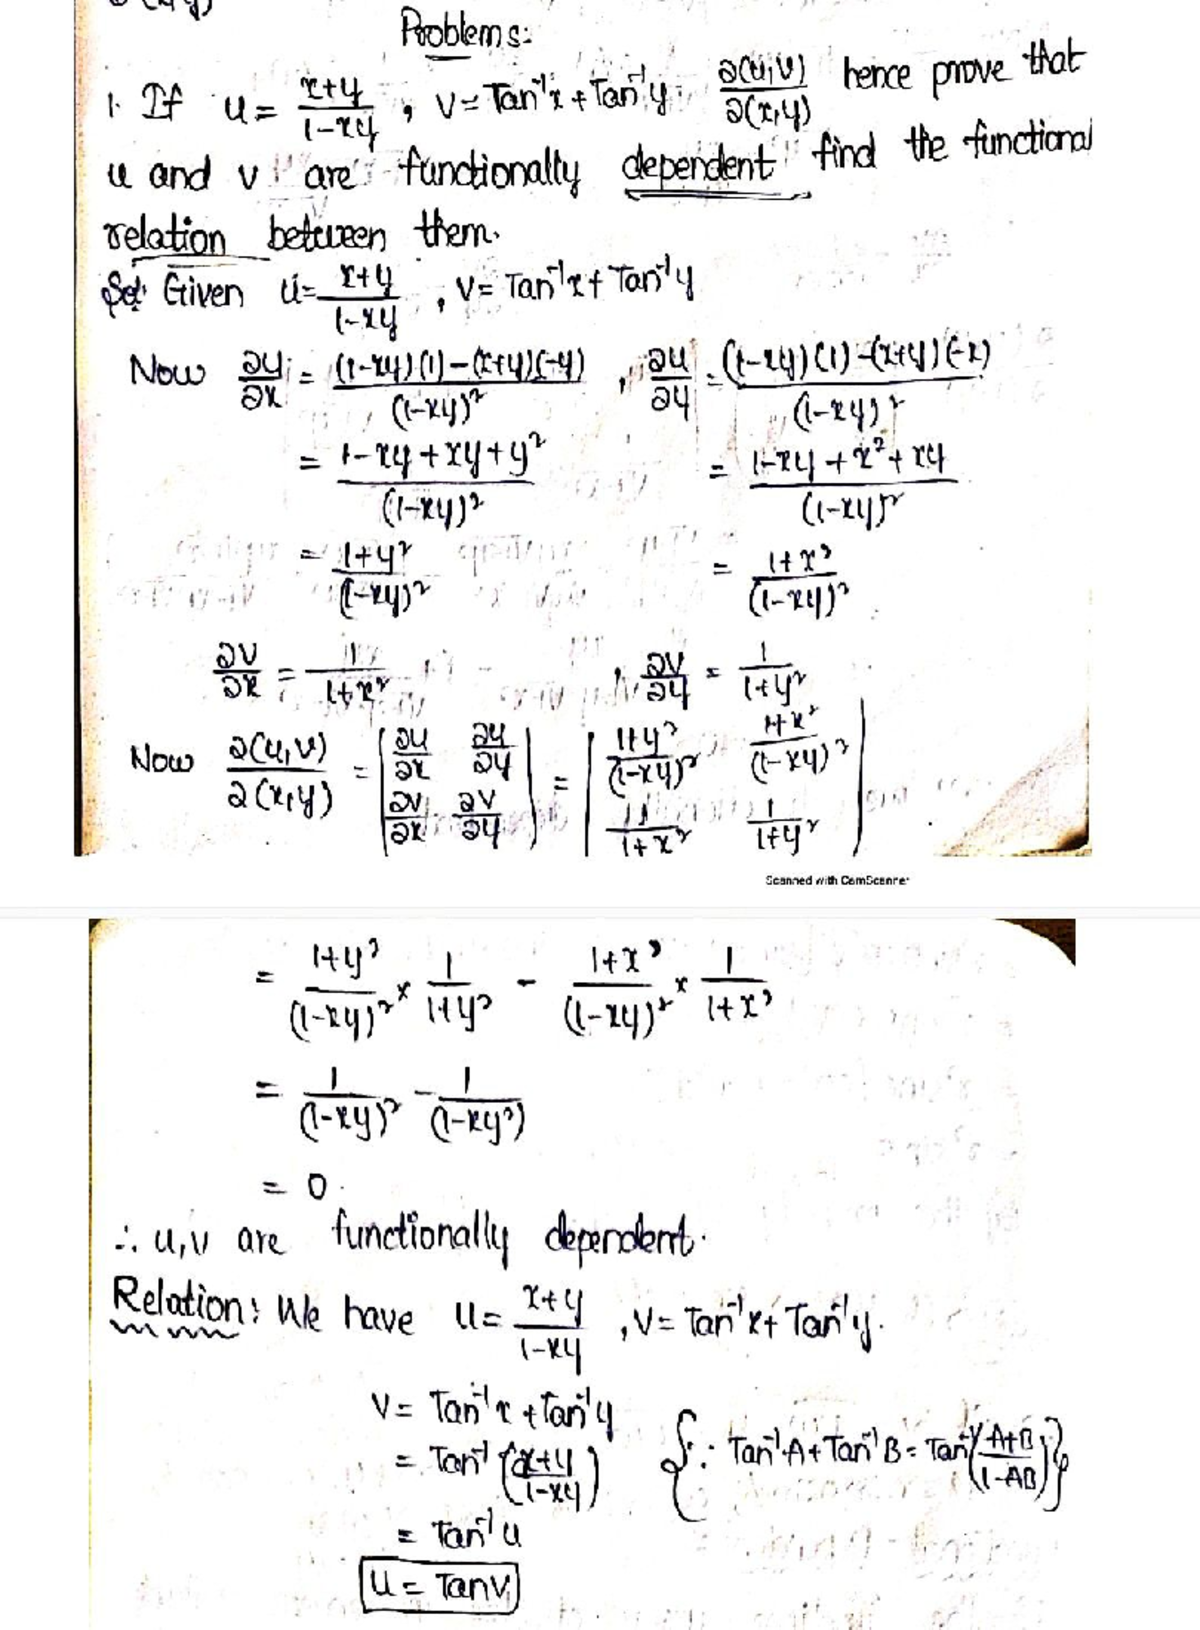 Problems:-
1. If u = x+y/1-xy, v = Tan⁻¹x + Tan⁻¹y ∂(u,v)/∂(x,y) hence prove that
u and v are functionally dependent find the functional
relation between them.
Sol: Given u = x+y/1-xy, v = Tan⁻¹x + Tan⁻¹y
Now ∂u/∂x = (1-xy)(1)-(x+y)(-y)/(1-xy)², ∂u/∂y = (1-xy)(1)-(x+y)(-x)/(1-xy)²
= 1-xy+xy+y²/(1-xy)² = 1-xy+x²+xy/(1-xy)²
= 1+y²/(1-xy)² = 1+x²/(1-xy)²
∂v/∂x = 1/1+x², ∂v/∂y = 1/1+y²
Now ∂(u,v)/∂(x,y) = | ∂u/∂x ∂u/∂y ; ∂v/∂x ∂v/∂y | = | 1+y²/(1-xy)² 1+x²/(1-xy)² ; 1/1+x² 1/1+y² |
Scanned with CamScanner
= 1+y²/(1-xy)² × 1/1+y² - 1+x²/(1-xy)² × 1/1+x²
= 1/(1-xy)² - 1/(1-xy²)
= 0.
∴ u,v are functionally dependent.
Relation: We have u = x+y/1-xy, v = Tan⁻¹x + Tan⁻¹y.
v = Tan⁻¹x + Tan⁻¹y
= Tan⁻¹(x+y/1-xy) {∵ Tan⁻¹A + Tan⁻¹B = Tan⁻¹(A+B/1-AB)}
= Tan⁻¹u
u = Tanv